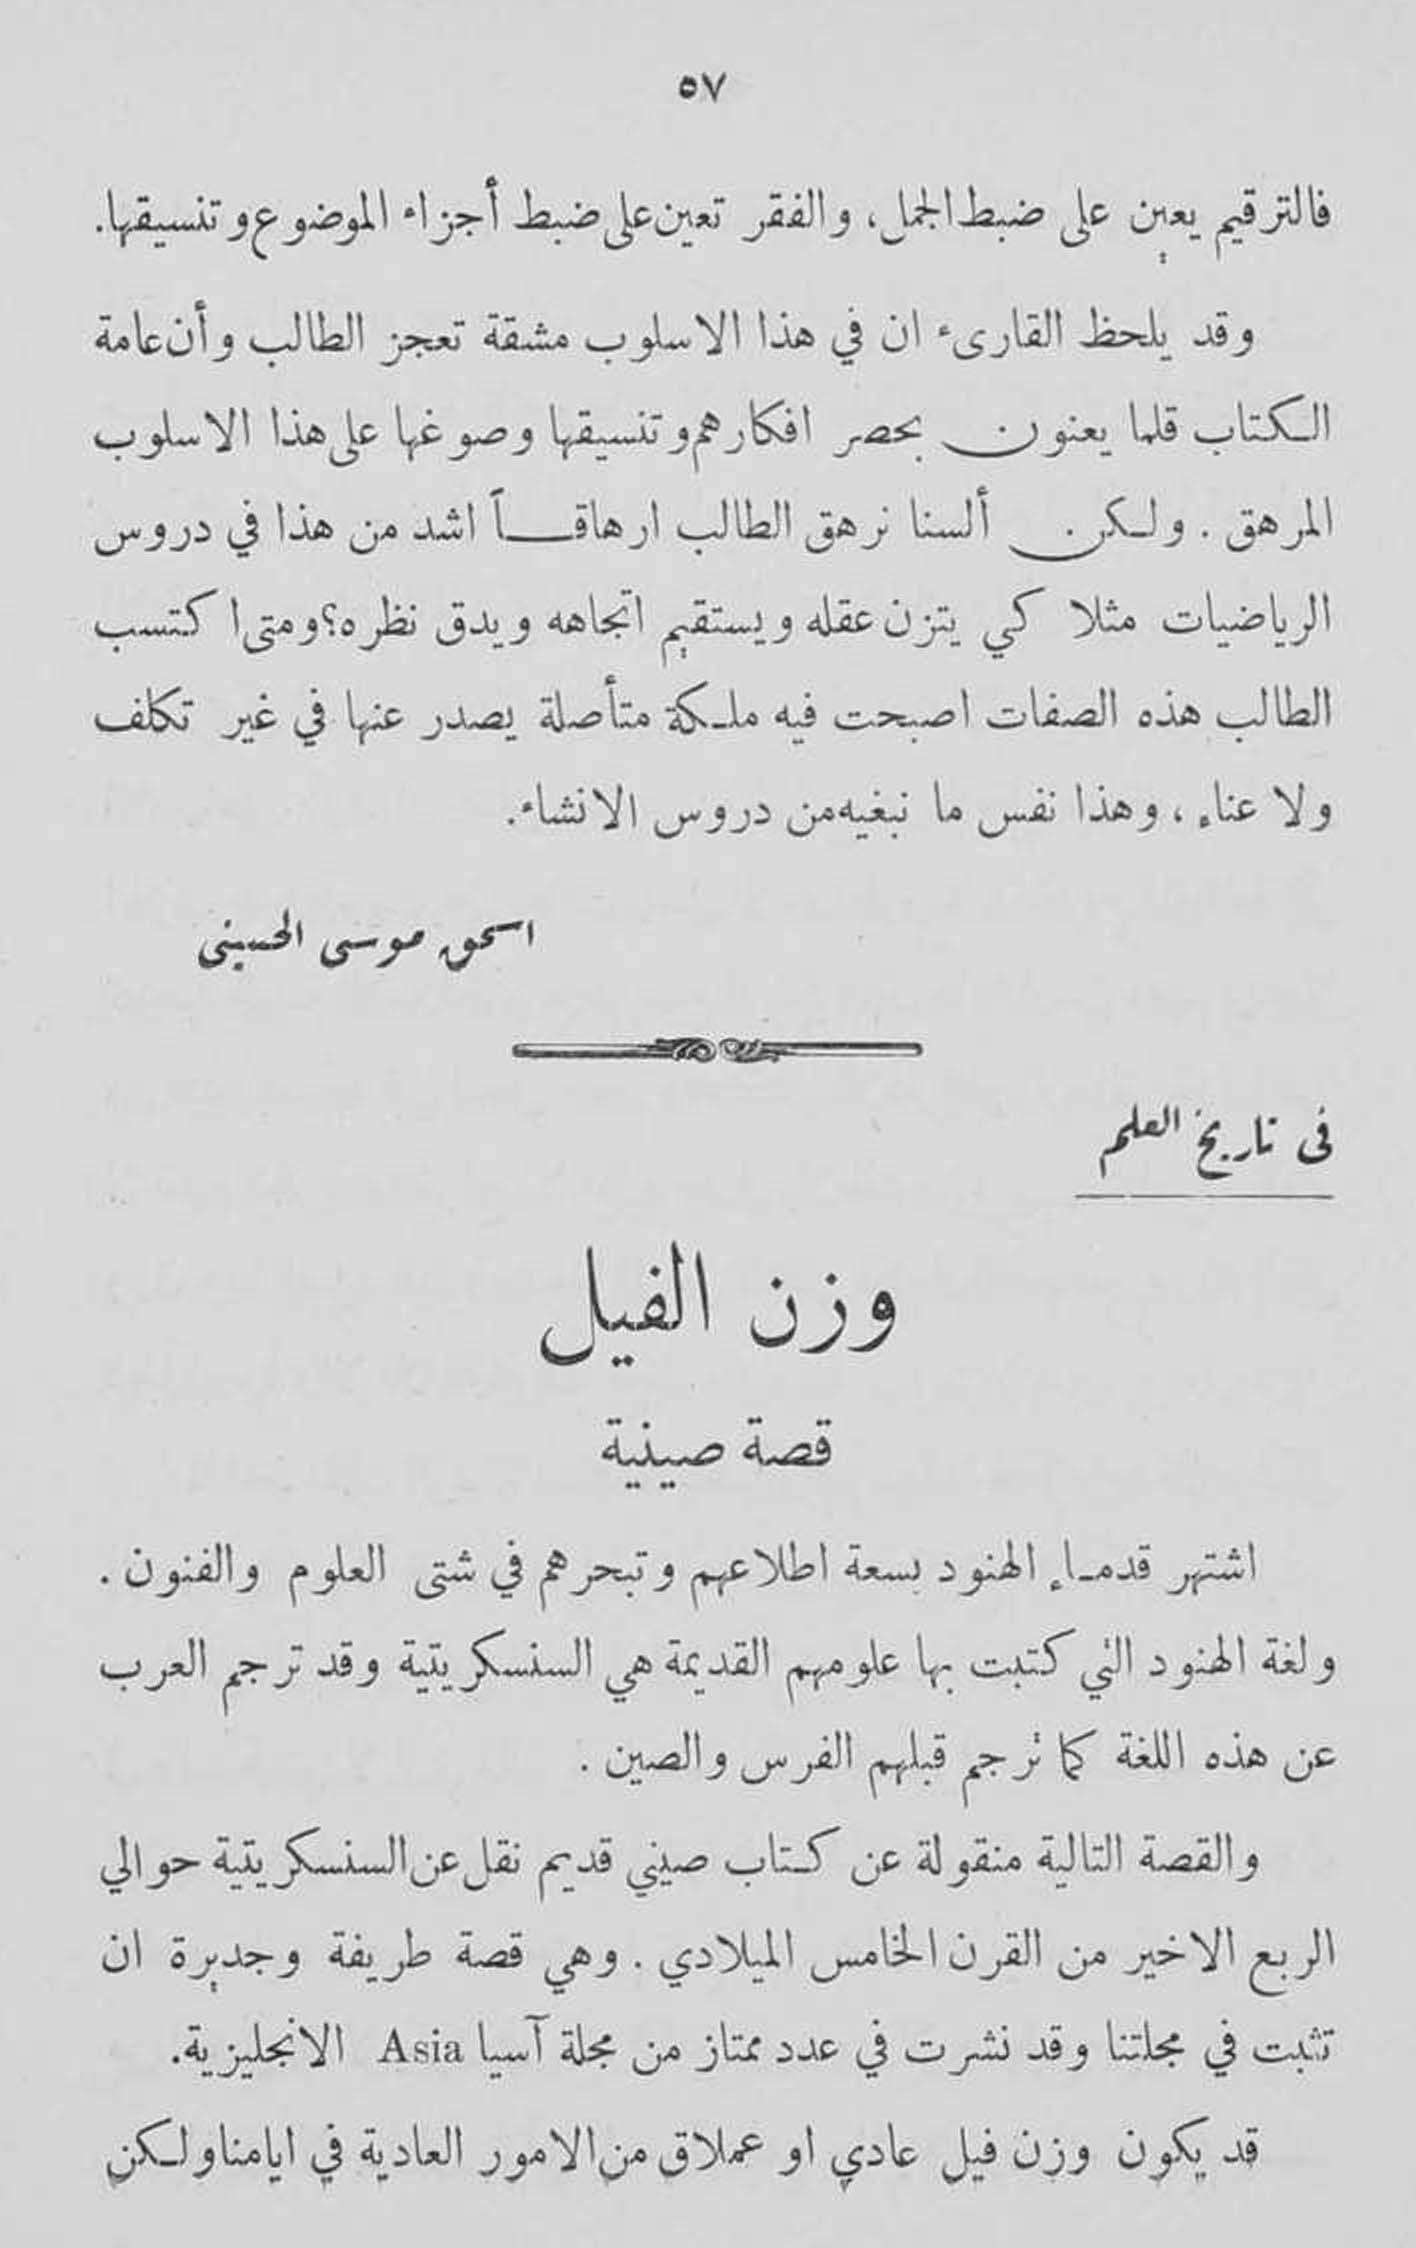 ٥٧
فالترقيم يعين على ضبط الجمل، والفقر تعين على ضبط أجزاء الموضوع وتنسيقها.
وقد يلحظ القارىء ان في هذا الاسلوب مشقة تعجز الطالب وأن عامة
الكتاب قلما يعنون بحصر افكارهم وتنسيقها وصوغها على هذا الاسلوب
المرهق . ولكن ألسنا نرهق الطالب ارهاقاً اشد من هذا في دروس
الرياضيات مثلا كي يتزن عقله ويستقيم اتجاهه ويدق نظره؟ ومتى اكتسب
الطالب هذه الصفات اصبحت فيه ملكة متأصلة يصدر عنها في غير تكلف
ولا عناء ، وهذا نفس ما نبغيه من دروس الانشاء.
اسحق موسى الحسيني
في تاريخ العلم
وزن الفيل
قصة صينية
اشتهر قدماء الهنود بسعة اطلاعهم وتبحرهم في شتى العلوم والفنون .
ولغة الهنود التي كتبت بها علومهم القديمة هي السنسكريتية وقد ترجم العرب
عن هذه اللغة كما ترجم قبلهم الفرس والصين .
والقصة التالية منقولة عن كتاب صيني قديم نقل عن السنسكريتية حوالي
الربع الاخير من القرن الخامس الميلادي . وهي قصة طريفة وجديرة ان
تثبت في مجلتنا وقد نشرت في عدد ممتاز من مجلة آسيا Asia الانجليزية.
قد يكون وزن فيل عادي او عملاق من الامور العادية في ايامنا ولكن